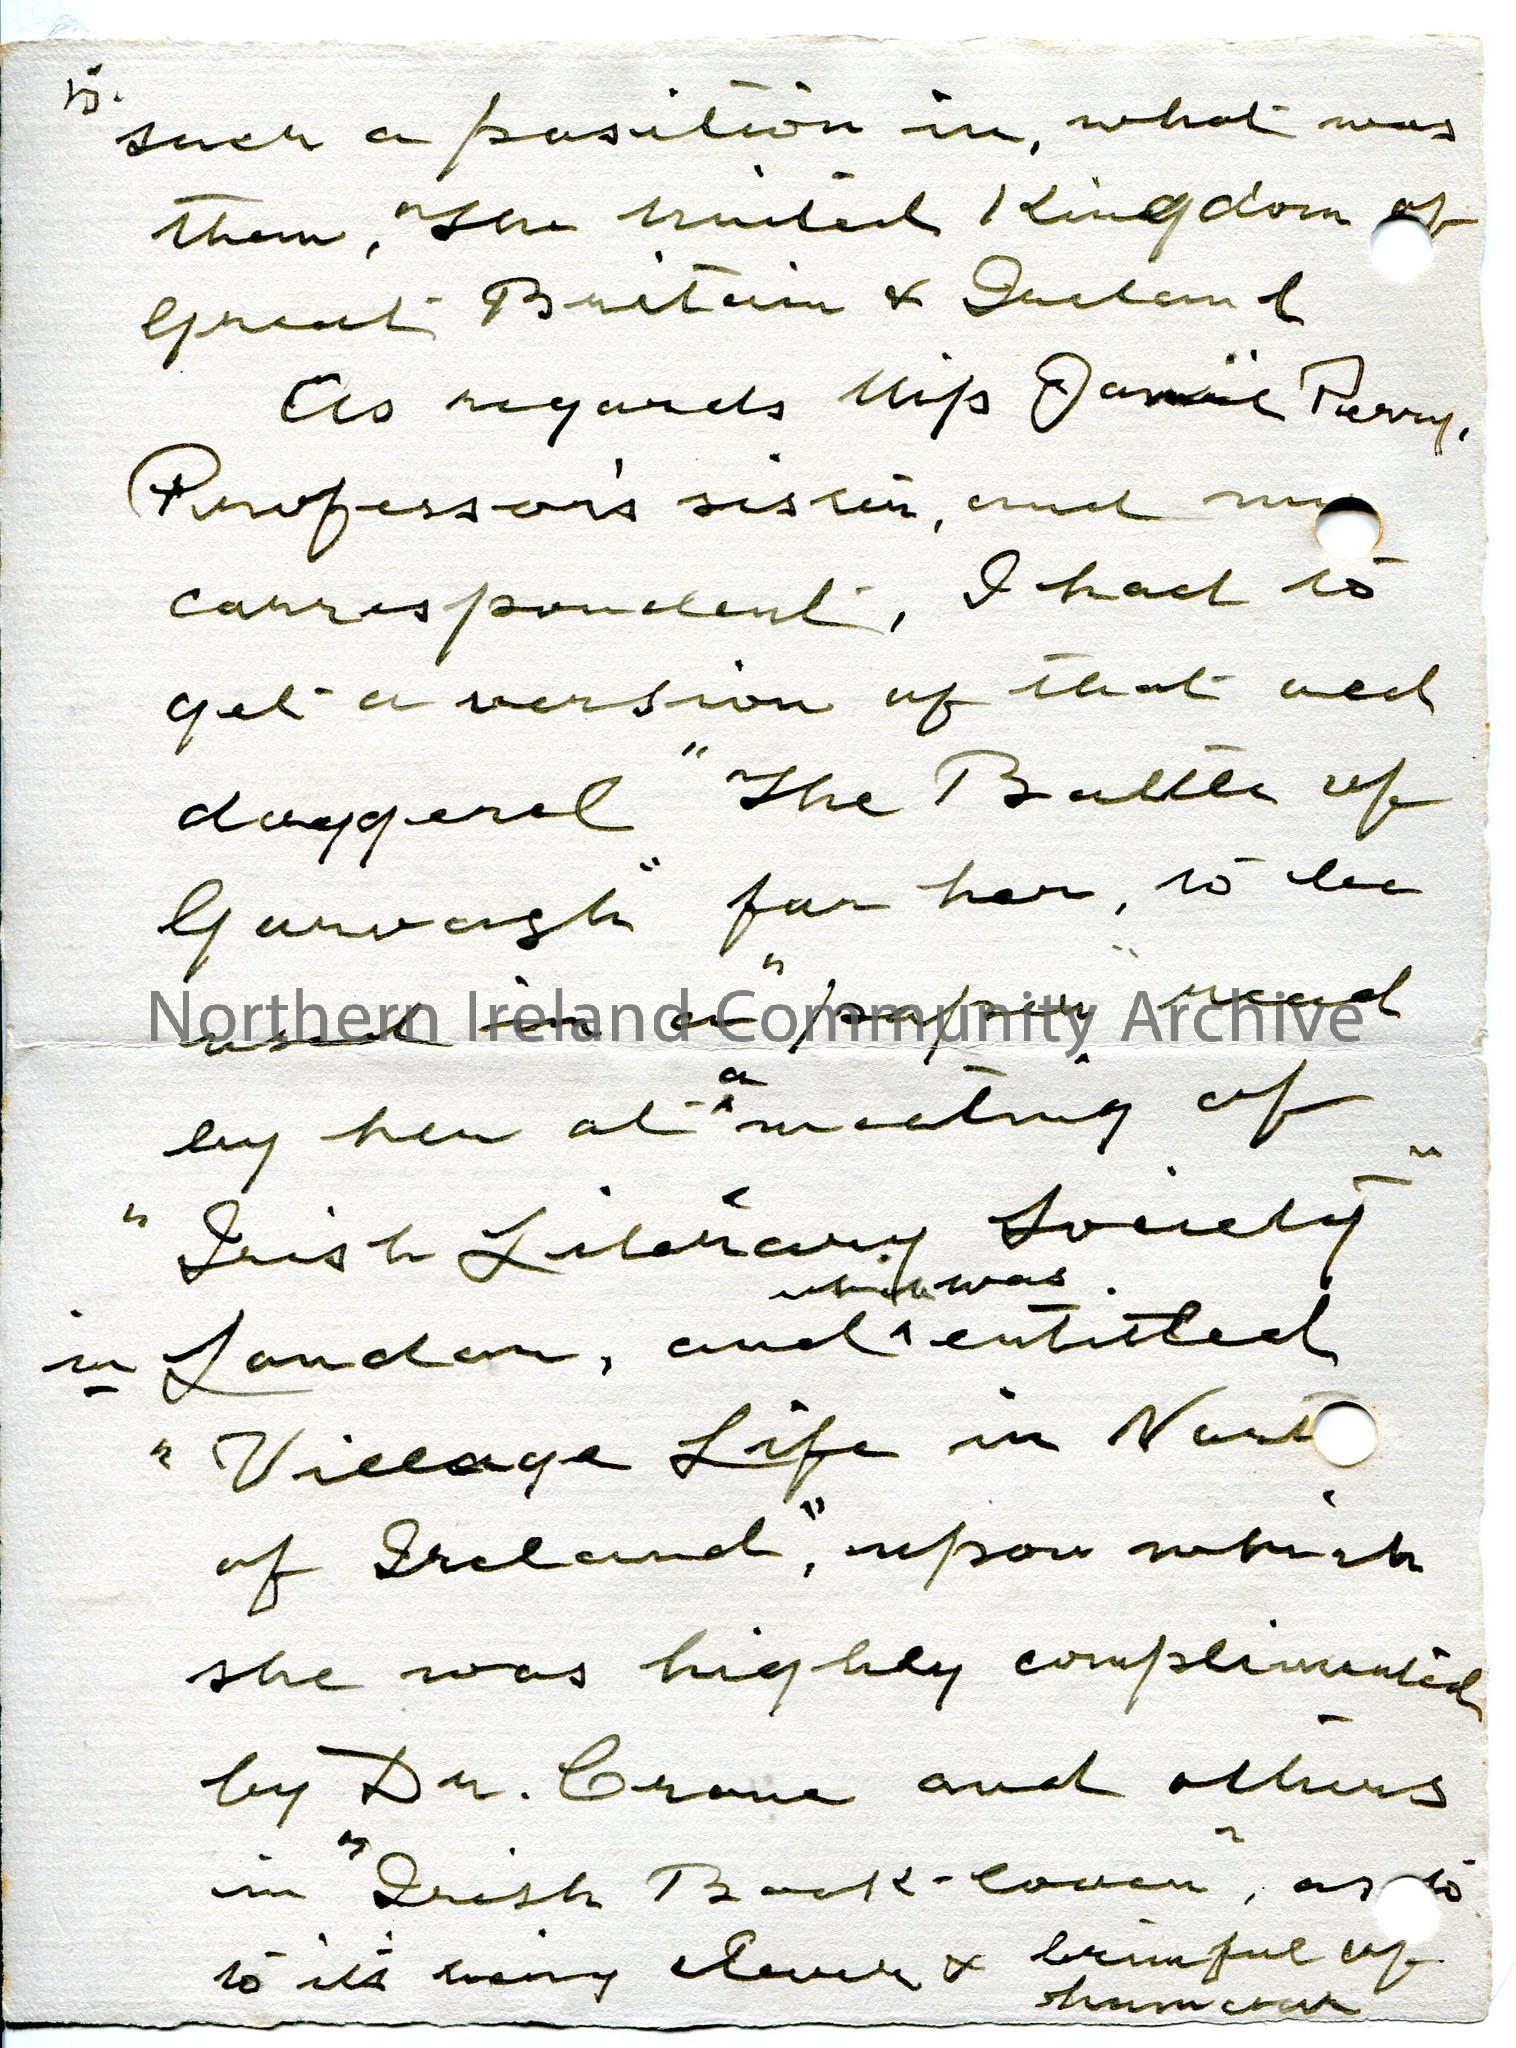 to
such a position in, what was
then, "The United Kingdom of
Great Britain & Ireland
As regards Miss Perry,
Professor's sister, and my
correspondent, I had to
get a version of that old
doggerel "The Battle of
Garvagh" for her, to be
used in a "paper" read
by her at a meeting of
"Irish Literary Society"
in London, and which was entitled
"Village Life in North
of Ireland", upon which
she was highly complimented
by Dr. Crone and others
in "Irish Book-lover", as to
to it's being clever & brimful of
humour
Northern Ireland Community Archive